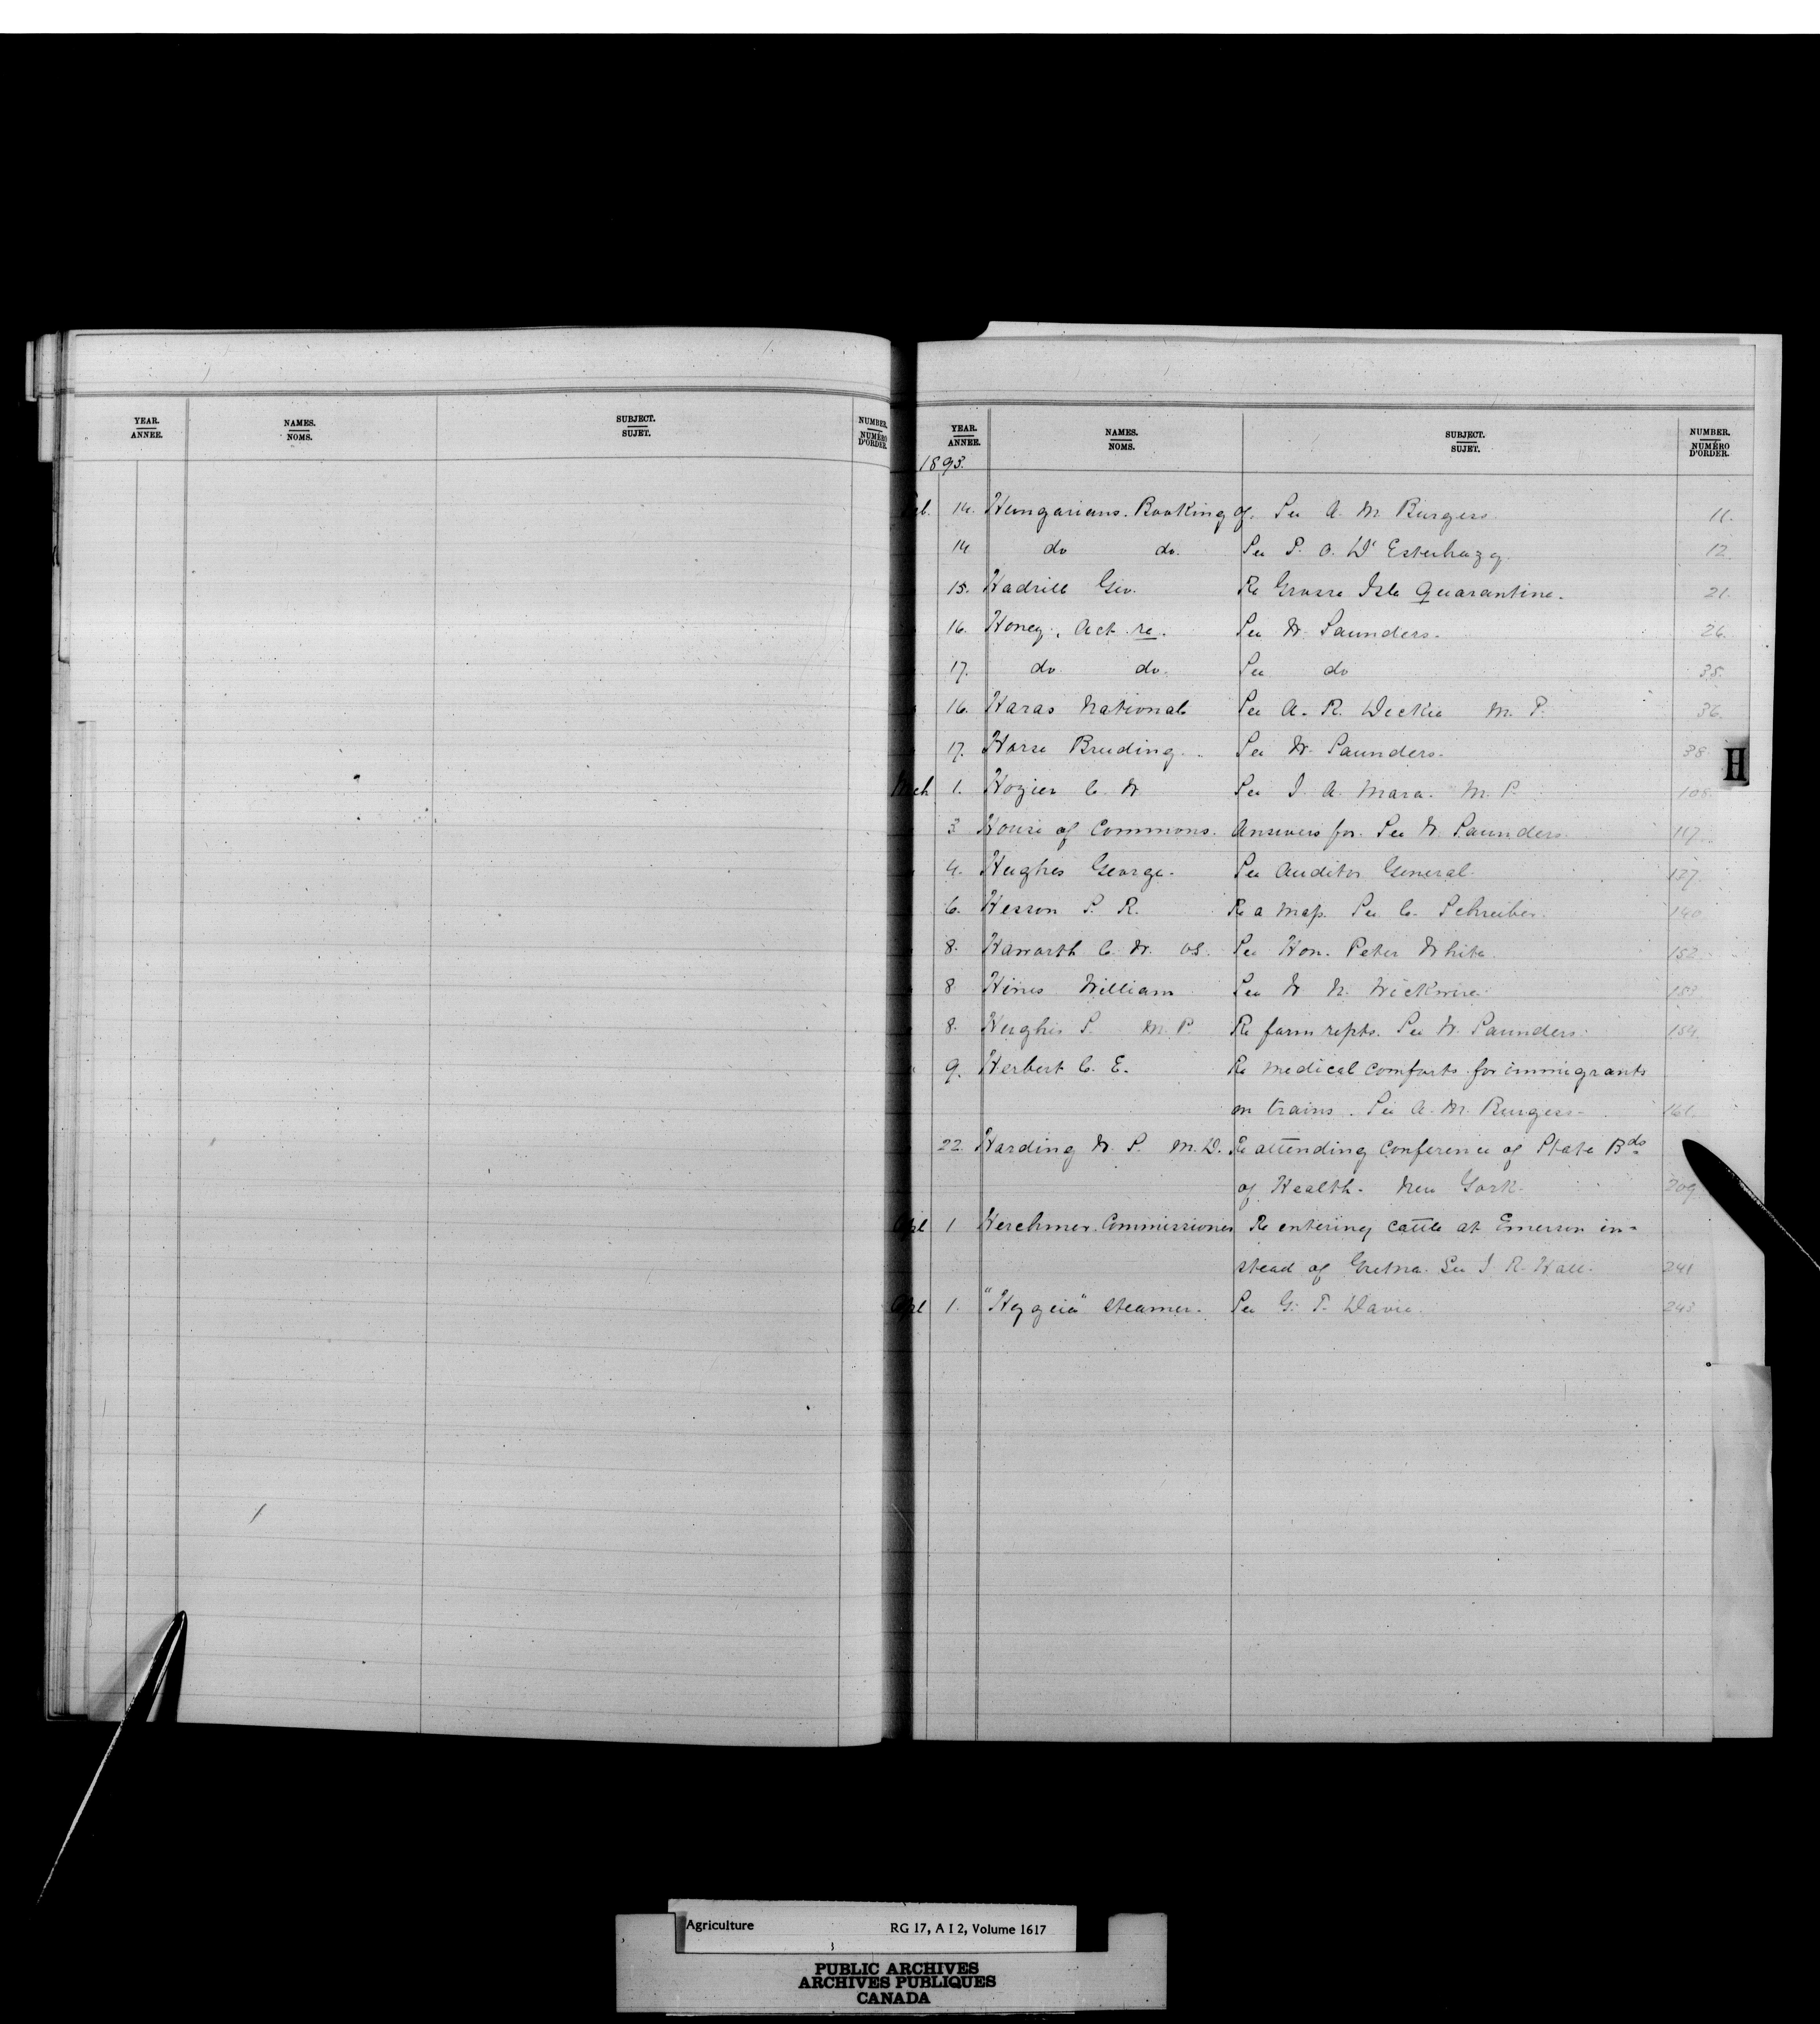 YEAR. NAMES. SUBJECT. NUMBER.
ANNEE. NOMS. SUJET. NUMÉRO D'ORDER.
YEAR. NAMES. SUBJECT. NUMBER.
ANNEE. NOMS. SUJET. NUMÉRO D'ORDER.
1893.
Feb. 14. Hungarians. Booking of. See A. M. Burgess. 11.
14 do do. See P. O. D'Esterhazy. 12
15. Hadrill Geo. Re Grosse Isle Quarantine. 21.
16. Honey, Act re. See W. Saunders. 26.
17. do do. See do 35.
16. Haras National See A. R. Dickie M. P. 36.
17. Horse Breeding. See W. Saunders. 38
H
Mch 1. Hozier C. W See J. A. Mara. M. P. 108.
3 House of Commons. Answers for. See W. Saunders. 117.
4. Hughes George. See Auditor General. 127.
6. Hesson S. R. Re a map. See C. Schreiber. 140
8. Haworth C. W. VS. See Hon. Peter White. 152
8 Hines William See W N. Wickwire. 153
8. Hughes S. M. P Re farm repts. See W. Saunders. 154.
9. Herbert C. E. Re medical comforts for immigrants
on trains. See A. M. Burgess. 161.
22. Harding W. S. M.D. Re attending Conference of State Bds
of Health. New York. 209
Apl 1 Herchmer. Commissioner Re entering cattle at Emerson in-
stead of Gretna. See J. R. Hall. 241
Apl 1. "Hygeia" Steamer. See G. T. Davie. 243
Agriculture RG 17, A I 2, Volume 1617
PUBLIC ARCHIVES
ARCHIVES PUBLIQUES
CANADA